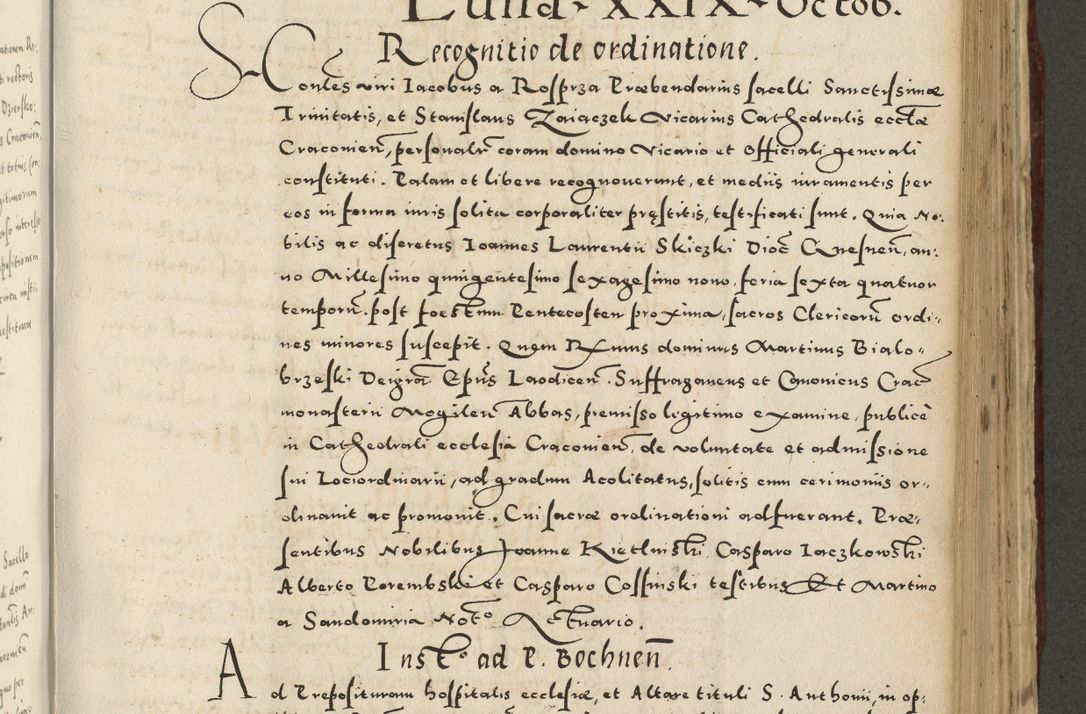 Luna XXIX Octob.
Recognitio de ordinatione.
Honles viri Iacobus a Rosprza Præbendarius sacelli Sanctissimæ
Trinitatis, et Stanislaus Zaiaczek Vicarius Cathedralis ecclæ
Cracovien, personalr coram domino Vicario et Officiali generali
constituti. Palam et libere recognoverunt, et mediis iuramentis per
eos in forma iuris solita corporaliter pręstitis, testificati sunt. Quia No:
bilis ac discretus Ioannes Laurentii Skiczki Dioc Gnesnen, an:
no Millesimo quingentesimo sexagesimo nono, feria sexta quatuor
temporu, post foestum Pentecosten proxima, sacros Clericoru ordi,,
nes minores suscepit. Quem Rxmus dominus Martinus Bialo,,
brzeski Dei gra Epus Laodicen. Suffraganeus et Canonicus Crac
monasterii Mogilen Abbas, premisso legitimo examine, publice
in Cathedrali ecclesia Cracovien, de voluntate et admissione
sui Lociordinarii, ad gradum Acolitatus, solitis cum cerimoniis or,,
dinavit ac promovit. Cui sacræ ordinationi adfuerant. Præ,
sentibus Nobilibus Joanne Kietlniski Casparo Iaczkowski
Alberto Porembski et Casparo Cossinski testibus Et Martino
a Sandomiria Noto Actuario.
Insto ad P. Bochnen.
Ad Preposituram hospitalis ecclesiæ, et Altare tituli S. Anthonii, in op: